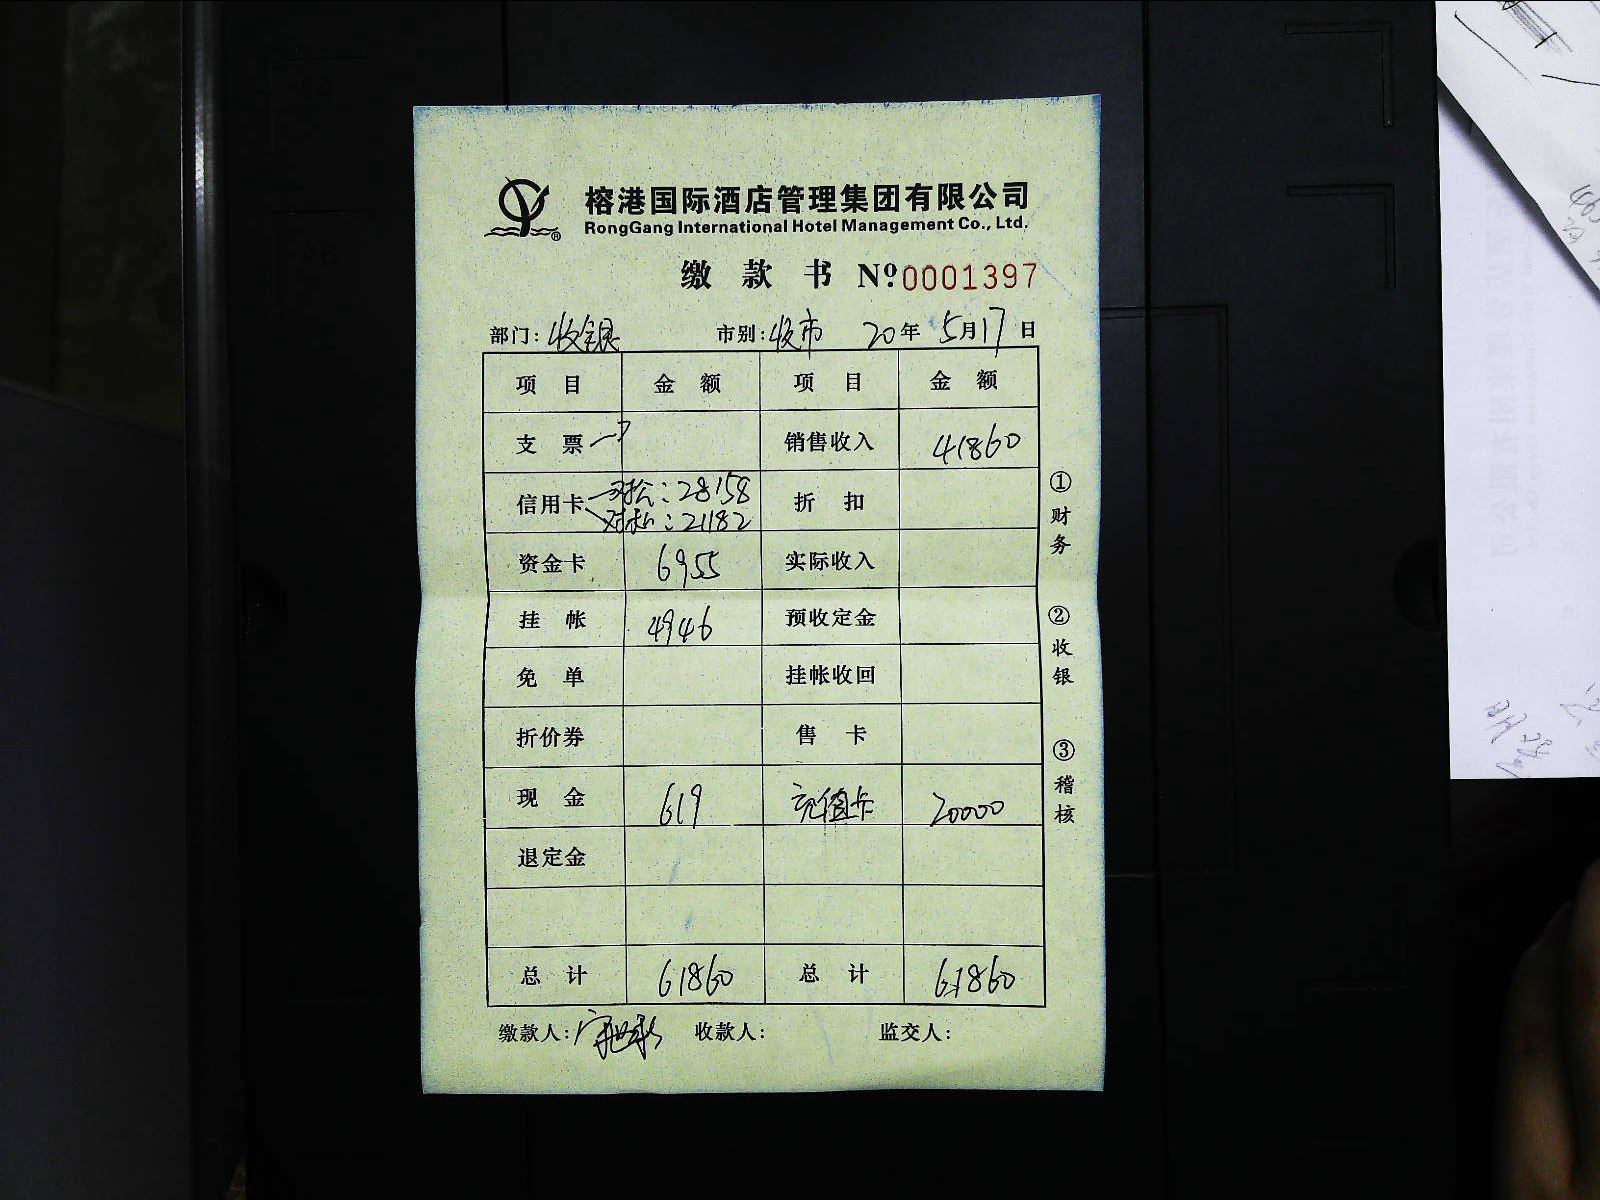 榕港国际酒店管理集团有限公司
RongGang International Hotel Management Co., Ltd.
缴 款 书 Nº 0001397
部门: 收银 市别: 收市 20年 5月17日
项 目 金 额 项 目 金 额
支 票 销售收入 41860
信用卡 对公: 28158 折 扣
对私: 21182
资金卡 6955 实际收入
挂 帐 4946 预收定金
免 单 挂帐收回
折价券 售 卡
现 金 619 充值卡 20000
退定金
总 计 61860 总 计 61860
缴款人: 收款人: 监交人:
①财务 ②收银 ③稽核